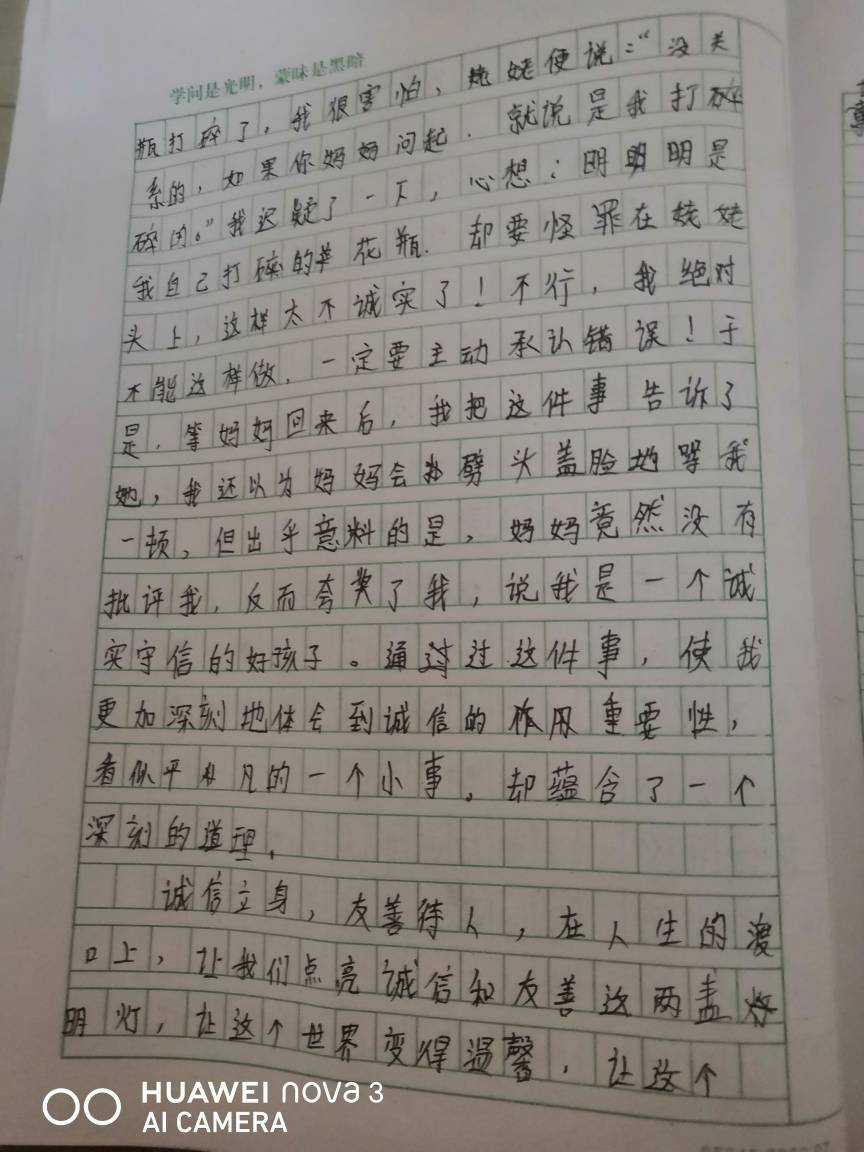 学问是光明，蒙昧是黑暗
瓶打碎了，我很害怕，姥姥便说：“没关
系的，如果你妈妈问起，就说是我打碎
碎的。”我迟疑了一下，心想：明明明是
我自己打碎的花瓶，却要怪罪在姥姥
头上，这样太不诚实了！不行，我绝对
不能这样做，一定要主动承认错误！于
是，等妈妈回来后，我把这件事告诉了
她，我还以为妈妈会劈头盖脸地骂我
一顿，但出乎意料的是，妈妈竟然没有
批评我，反而夸奖了我，说我是一个诚
实守信的好孩子。通过过这件事，使我
更加深刻地体会到诚信的作用重要性，
看似平凡的一个小事，却蕴含了一个
深刻的道理。
诚信立身，友善待人，在人生的渡
口上，让我们点亮诚信和友善这两盏
明灯，让这个世界变得温馨，让这个
HUAWEI nova 3
AI CAMERA